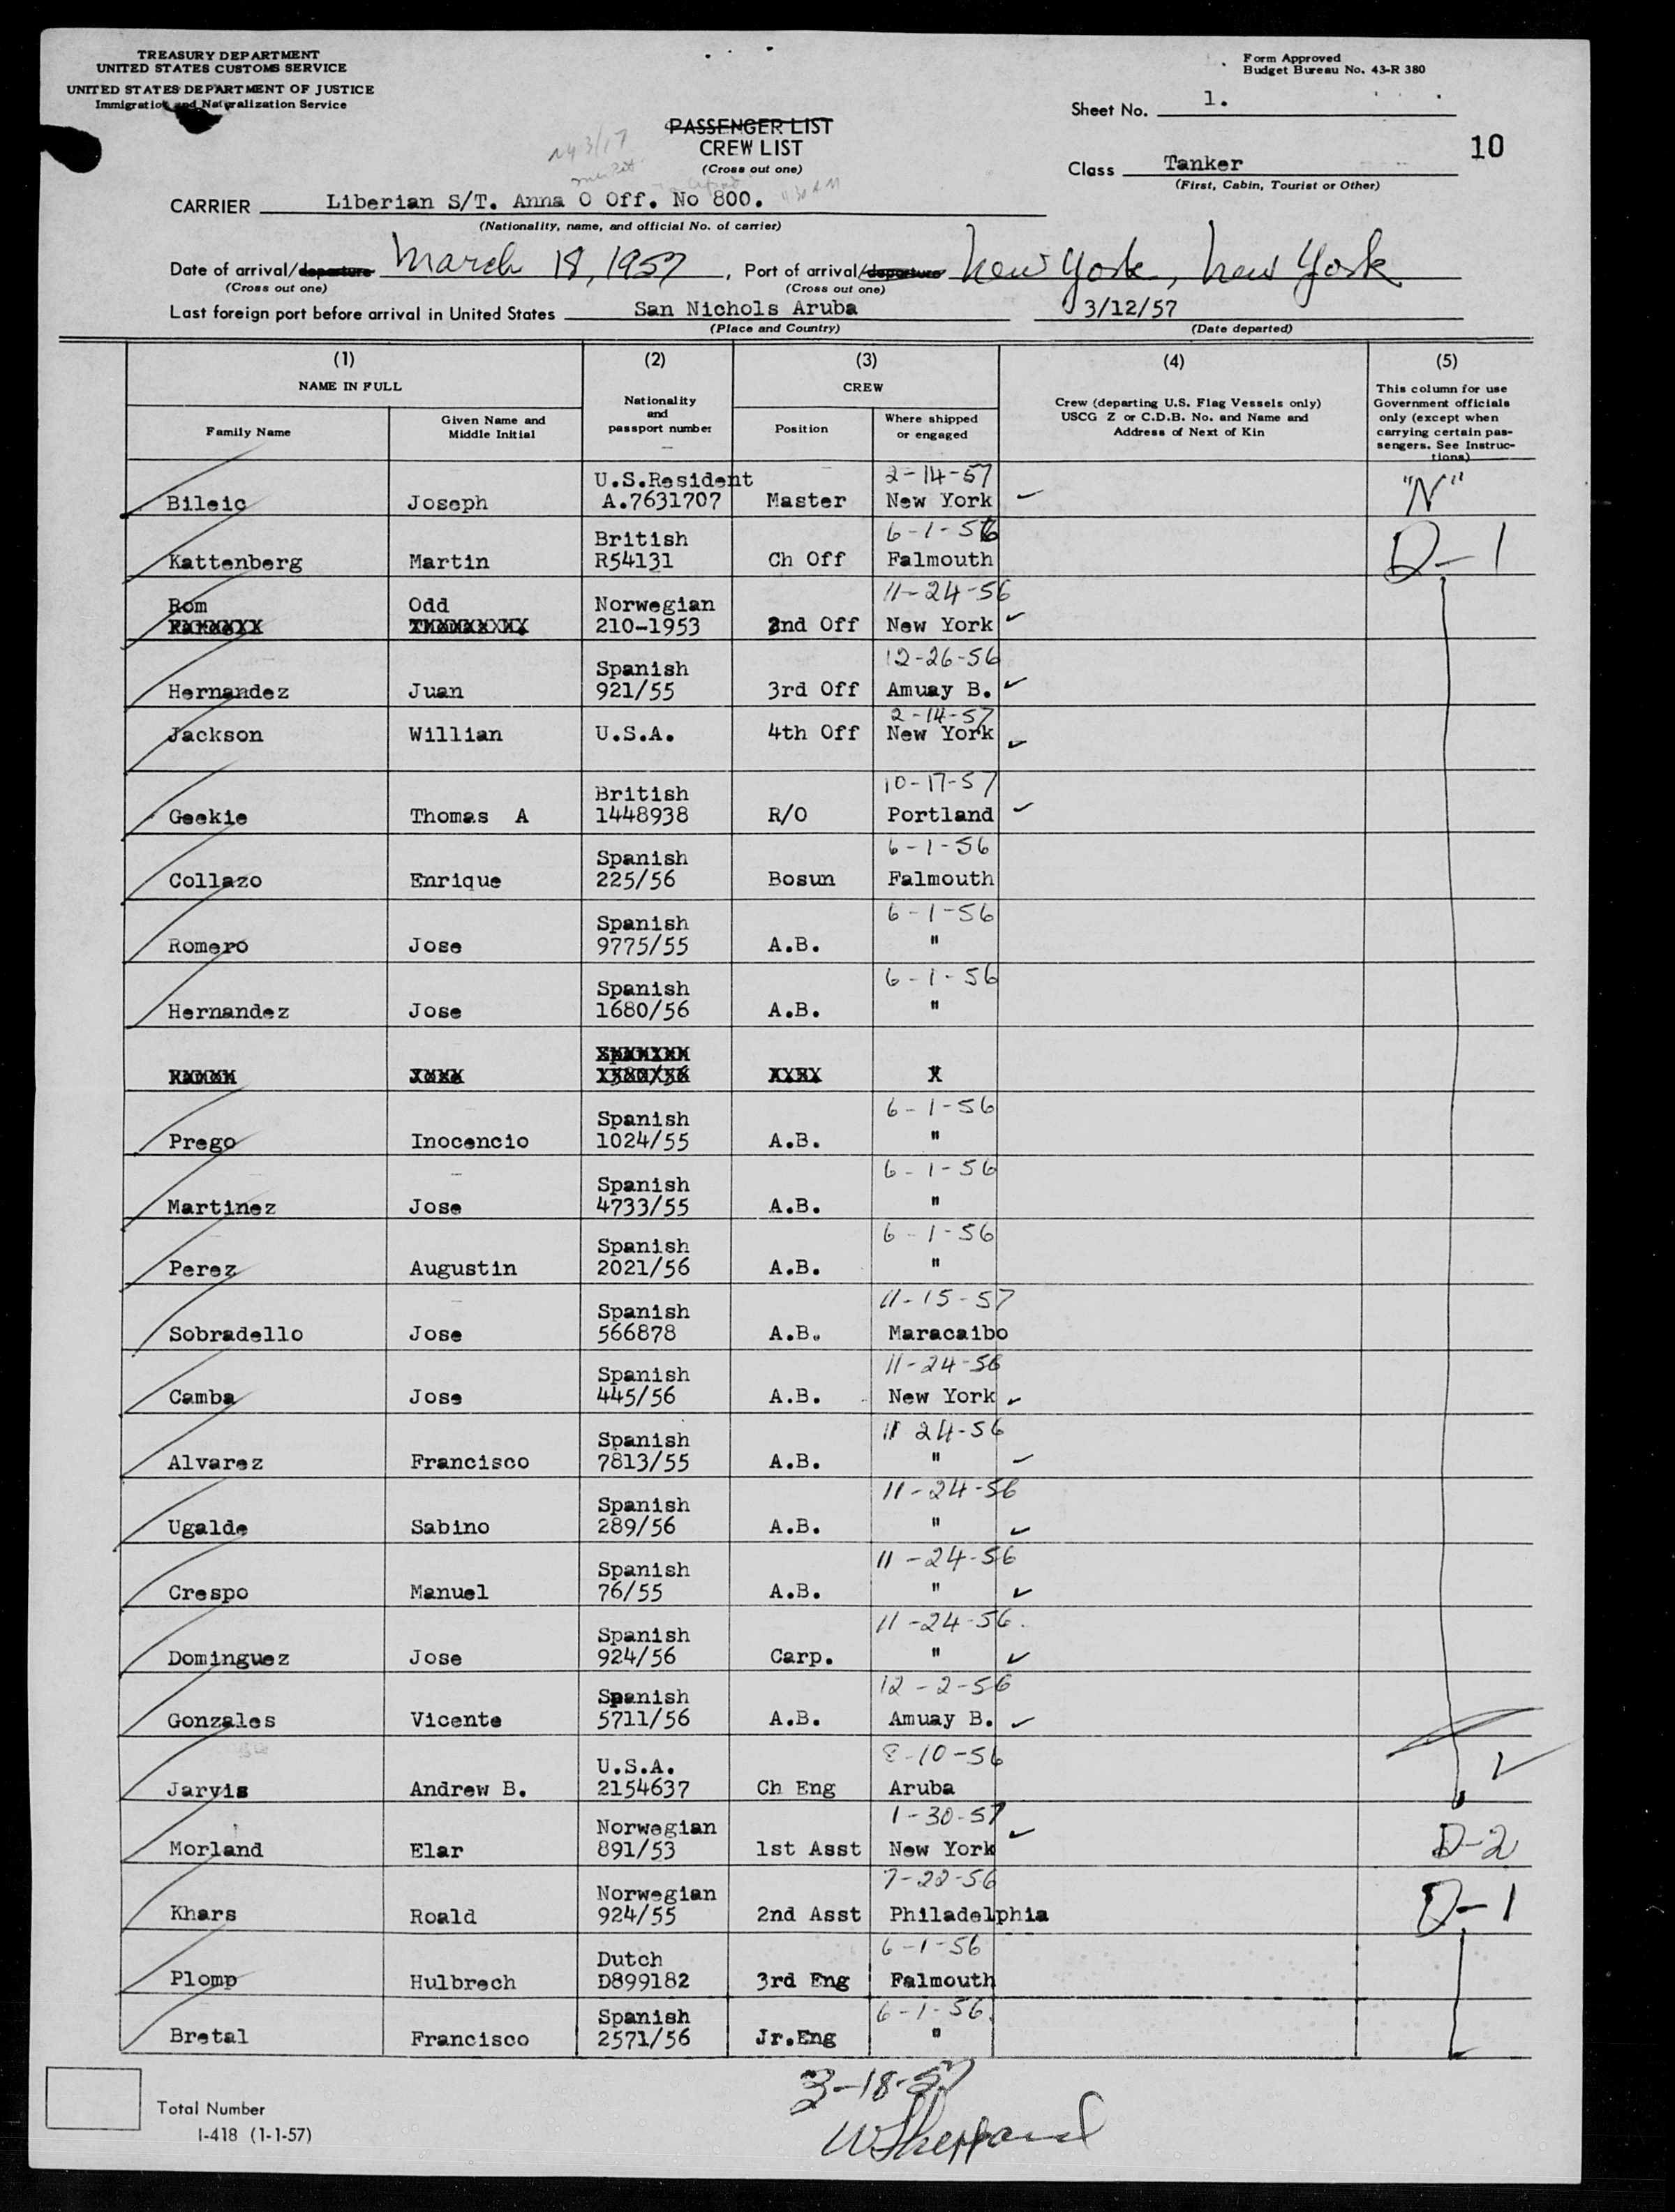 TREASURY DEPARTMENT
UNITED STATES CUSTOMS SERVICE
UNITED STATES DEPARTMENT OF JUSTICE
Immigration and Naturalization Service
Form Approved
Budget Bureau No. 43-R 380
Sheet No. 1.
10
PASSENGER LIST
CREW LIST
(Cross out one)
Class Tanker
(First, Cabin, Tourist or Other)
CARRIER Liberian S/T. Anna O Off. No 800.
(Nationality, name, and official No. of carrier)
Date of arrival/departure March 18, 1957, Port of arrival/departure New York, New York
(Cross out one) (Cross out one)
Last foreign port before arrival in United States San Nichols Aruba 3/12/57
(Place and Country) (Date departed)
(1) (2) (3) (4) (5)
NAME IN FULL
Family Name
Given Name and
Middle Initial
Nationality
and
passport number
CREW
Position
Where shipped
or engaged
Crew (departing U.S. Flag Vessels only)
USCG Z or C.D.B. No. and Name and
Address of Next of Kin
This column for use
Government officials
only (except when
carrying certain pas-
sengers. See Instruc-
tions)
U.S.Resident 2-14-57
Bileic Joseph A.7631707 Master New York "N"
British 6-1-56
Kattenberg Martin R54131 Ch Off Falmouth D-1
11-24-56
Rom Odd Norwegian
210-1953 2nd Off New York
12-26-56
Spanish
Hernandez Juan 921/55 3rd Off Amuay B.
2-14-57
Jackson Willian U.S.A. 4th Off New York
10-17-57
British
Geekie Thomas A 1448938 R/O Portland
6-1-56
Spanish
Collazo Enrique 225/56 Bosun Falmouth
6-1-56
Spanish
Romero Jose 9775/55 A.B. "
6-1-56
Spanish
Hernandez Jose 1680/56 A.B. "
6-1-56
Spanish
Prego Inocencio 1024/55 A.B. "
6-1-56
Spanish
Martinez Jose 4733/55 A.B. "
6-1-56
Spanish
Perez Augustin 2021/56 A.B. "
11-15-57
Spanish
Sobradello Jose 566878 A.B. Maracaibo
11-24-56
Spanish
Camba Jose 445/56 A.B. New York
11 24-56
Spanish
Alvarez Francisco 7813/55 A.B. "
11-24-56
Spanish
Ugalde Sabino 289/56 A.B. "
11-24-56
Spanish
Crespo Manuel 76/55 A.B. "
11-24-56.
Spanish
Dominguez Jose 924/56 Carp. "
12-2-56
Spanish
Gonzales Vicente 5711/56 A.B. Amuay B.
8-10-56
U.S.A.
Jarvis Andrew B. 2154637 Ch Eng Aruba
1-30-57
Norwegian
Morland Elar 891/53 1st Asst New York D-2
7-22-56
Norwegian
Khars Roald 924/55 2nd Asst Philadelphia D-1
6-1-56
Dutch
Plomp Hulbrech D899182 3rd Eng Falmouth
6-1-56.
Spanish
Bretal Francisco 2571/56 Jr.Eng "
3-18-57
W Sheppard
Total Number
I-418 (1-1-57)